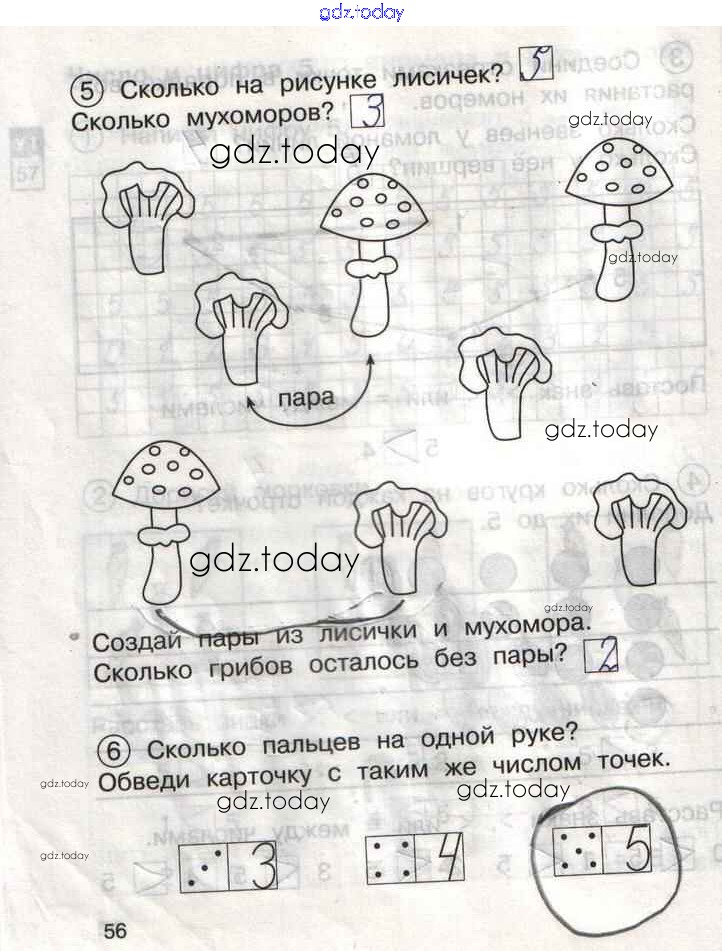 gdz.today
5 Сколько на рисунке лисичек? 5
Сколько мухоморов? 3
gdz.today
gdz.today
gdz.today
пара
gdz.today
gdz.today
gdz.today
Создай пары из лисички и мухомора.
Сколько грибов осталось без пары? 2
6 Сколько пальцев на одной руке?
Обведи карточку с таким же числом точек.
gdz.today
gdz.today
gdz.today
gdz.today
3 4 5
56